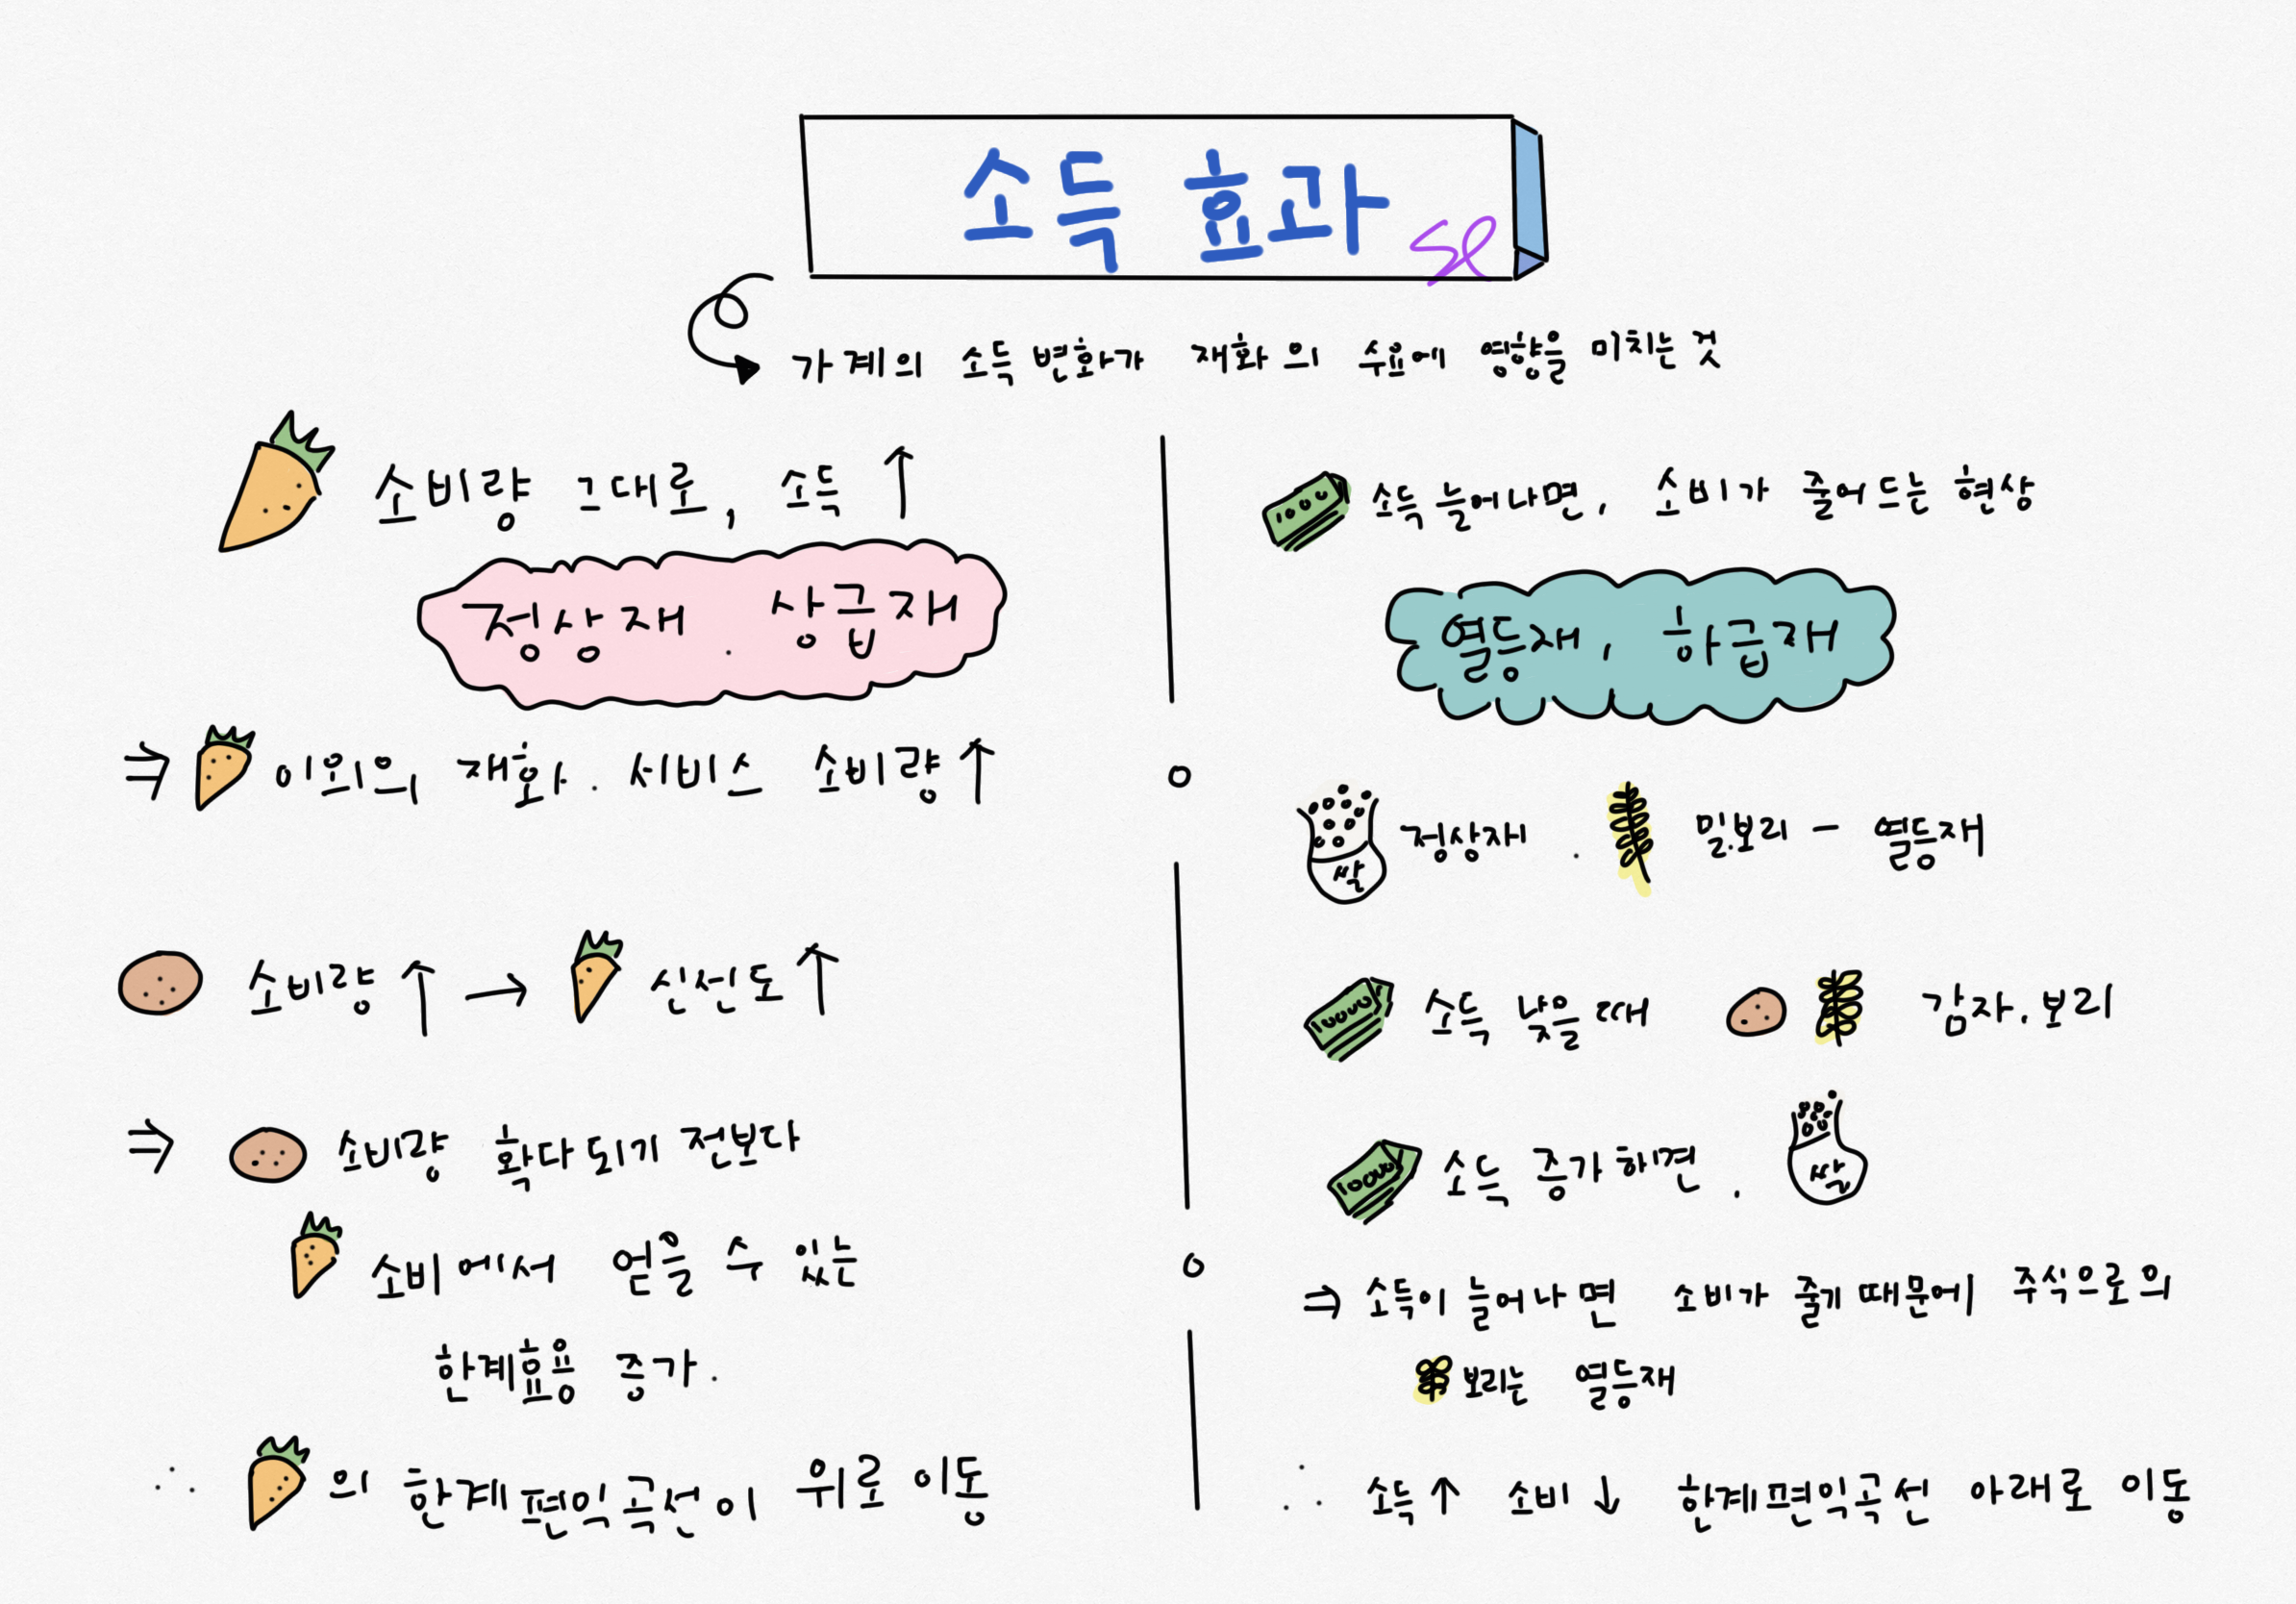 소득 효과
가계의 소득 변화가 재화의 수요에 영향을 미치는 것
소비량 그대로, 소득 ↑
정상재 . 상급재
⇒ 이외의 재화. 서비스 소비량 ↑
소비량 ↑ → 신선도 ↑
⇒ 소비량 확다되기 전보다
소비에서 얻을 수 있는
한계효용 증가.
∴ 의 한계편익곡선이 위로 이동
1000 소득 늘어나면, 소비가 줄어드는 현상
열등재, 하급재
쌀 정상재 . 밀.보리 - 열등재
10000 소득 낮을 때 감자.보리
10000 소득 증가하면. 쌀
⇒ 소득이 늘어나면 소비가 줄기 때문에 주식으로의
보리는 열등재
∴ 소득 ↑ 소비 ↓ 한계편익곡선 아래로 이동